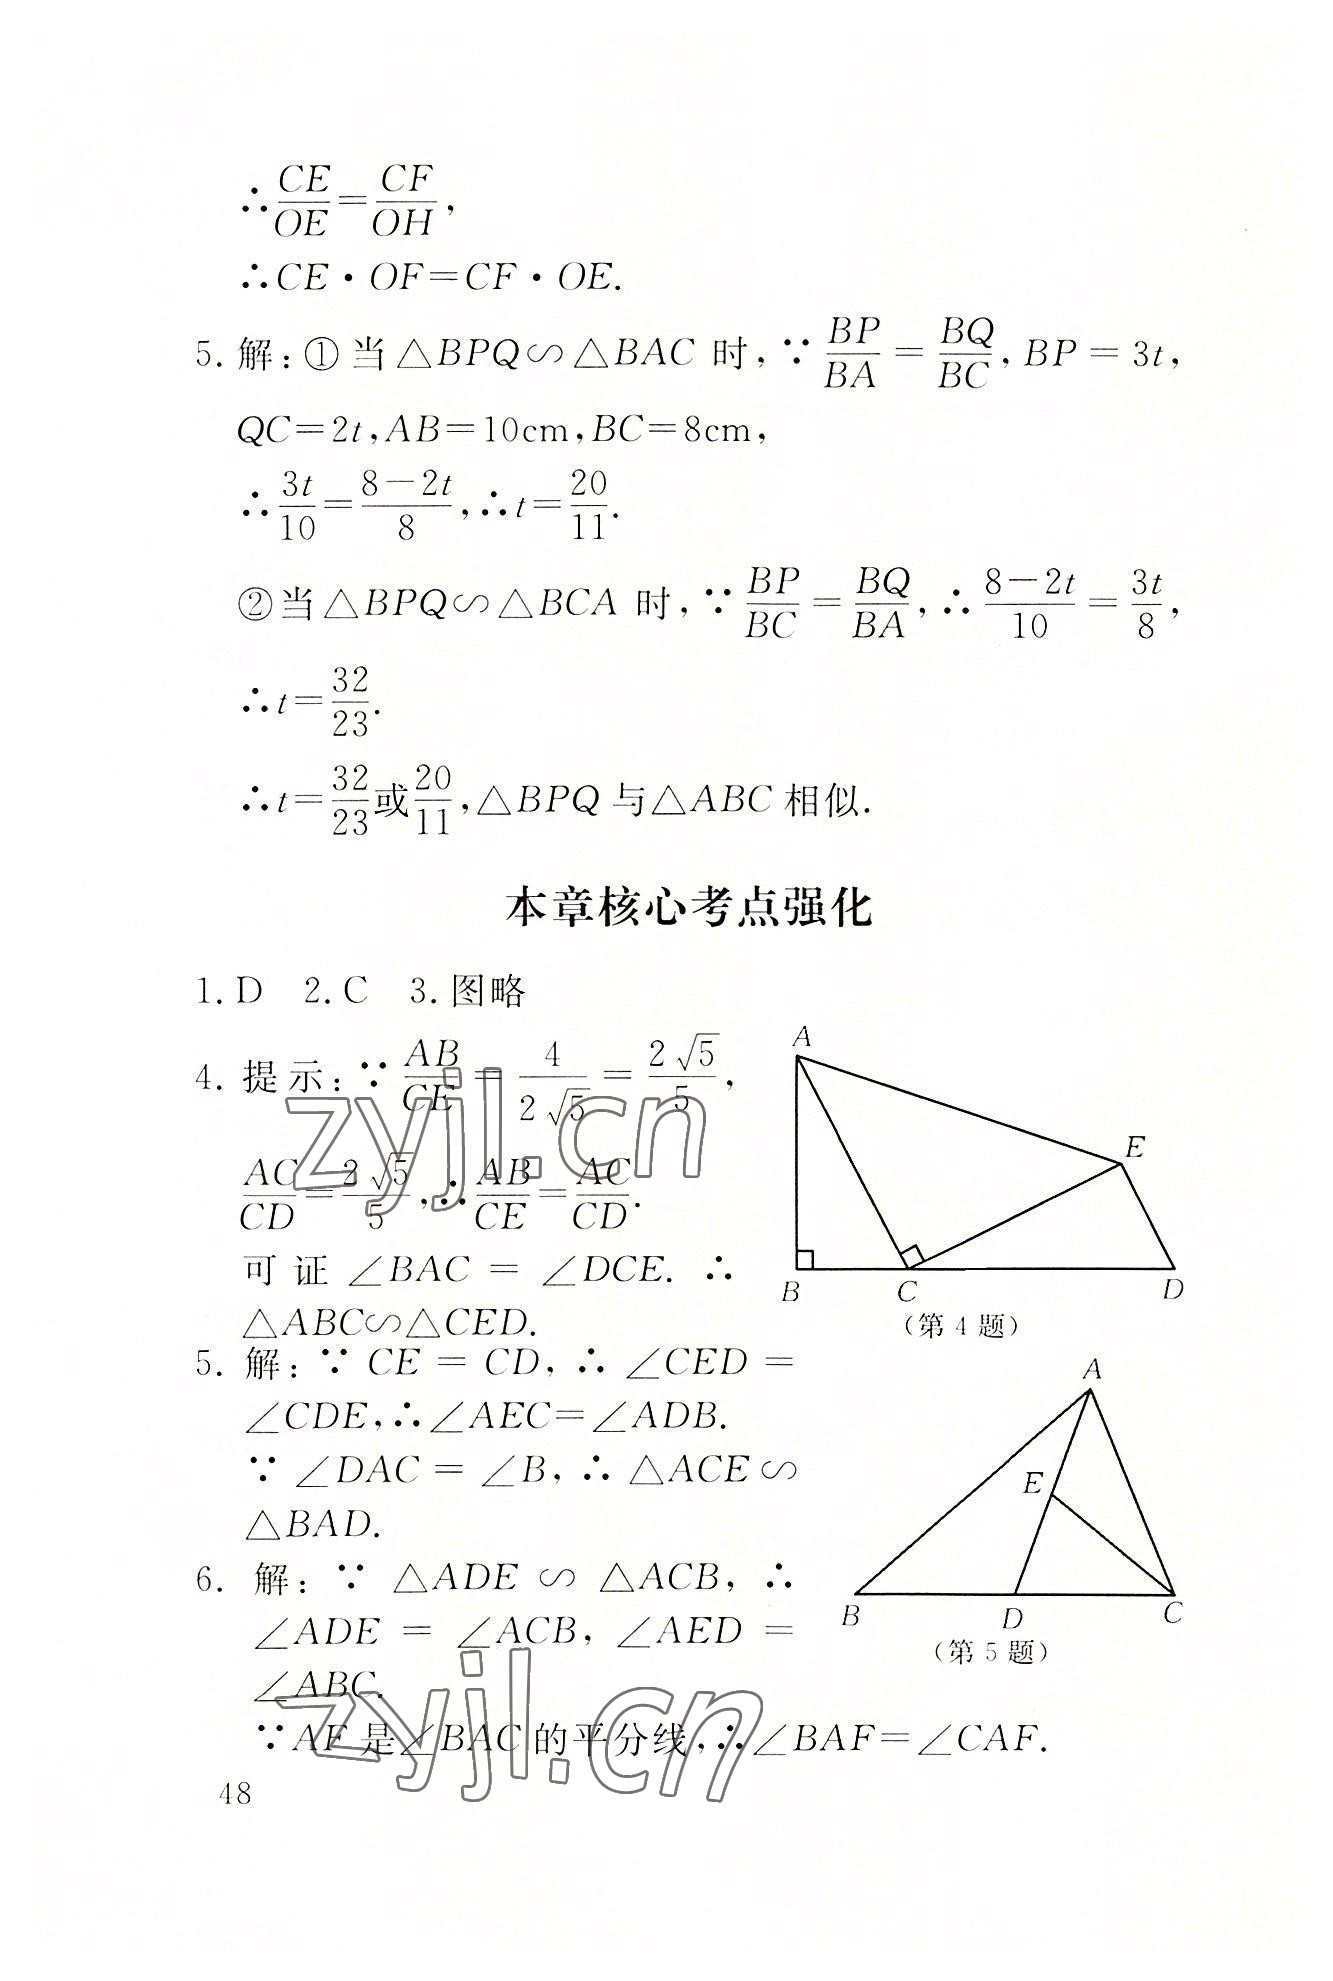 ∴CE/OE=CF/OH,
∴CE·OF=CF·OE.
5.解:①当△BPQ∽△BAC时,∵BP/BA=BQ/BC,BP=3t,
QC=2t,AB=10cm,BC=8cm,
∴3t/10=(8-2t)/8,∴t=20/11.
②当△BPQ∽△BCA时,∵BP/BC=BQ/BA,∴(8-2t)/10=3t/8,
∴t=32/23.
∴t=32/23或20/11,△BPQ与△ABC相似.
本章核心考点强化
1.D 2.C 3.图略
4.提示:∵AB/CE=4/(2√5)=2√5/5,
AC/CD=2√5/5,∴AB/CE=AC/CD.
可证∠BAC=∠DCE.∴
△ABC∽△CED.
A
E
B
C
D
(第4题)
5.解:∵CE=CD,∴∠CED=
∠CDE,∴∠AEC=∠ADB.
∵∠DAC=∠B,∴△ACE∽
△BAD.
A
E
B
D
C
(第5题)
6.解:∵△ADE∽△ACB,∴
∠ADE=∠ACB,∠AED=
∠ABC.
∵AF是∠BAC的平分线,∴∠BAF=∠CAF.
48
zyjl.cn
zyjl.cn